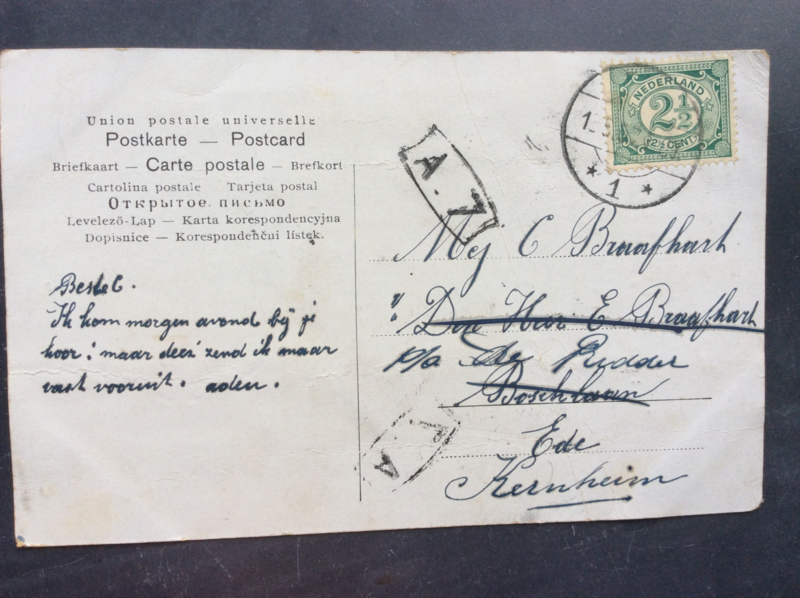 Union postale universelle
Postkarte — Postcard
Briefkaart — Carte postale — Brefkort
Cartolina postale Tarjeta postal
Открытое письмо
Levelező-Lap — Karta korespondencyjna
Dopisnice — Korespondenčni listek.
Beste C.
Ik kom morgen avond bij je
hoor! maar deez' zend ik maar
vast vooruit. aden.
NEDERLAND
2½
2½ CENT
1
A. 7
Mej C Braafhart
E Braafhart
p/a de Ridder
Boschlaan
Ede
Kernheim